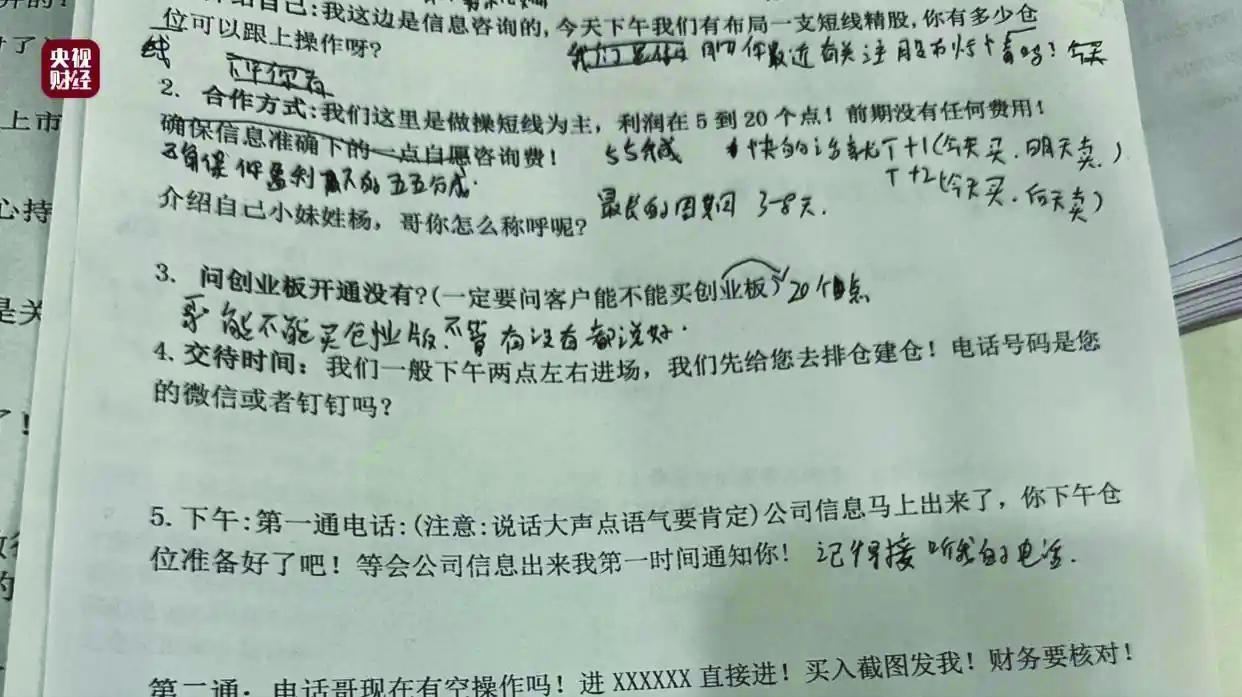 介绍自己:我这边是信息咨询的,今天下午我们有布局一支短线精股,你有多少仓
位可以跟上操作呀?
央视
财经
2. 合作方式:我们这里是做操短线为主,利润在 5 到 20 个点!前期没有任何费用!
确保信息准确下的一点自愿咨询费!
55分成
快的话就 T+1(今天买.明天卖.)
T+2(今天买.后天卖)
介绍自己小妹姓杨,哥你怎么称呼呢?
最长的周期 3-8天.
3. 问创业板开通没有?(一定要问客户能不能买创业板)20个点
能不能买创业版.不管有没有都说好.
4. 交待时间:我们一般下午两点左右进场,我们先给您去排仓建仓!电话号码是您
的微信或者钉钉吗?
5. 下午:第一通电话:(注意:说话大声点语气要肯定)公司信息马上出来了,你下午仓
位准备好了吧!等会公司信息出来我第一时间通知你! 记得接听我的电话.
第二通:电话哥现在有空操作吗!进 XXXXXX 直接进!买入截图发我!财务要核对!
上市
心持
是关